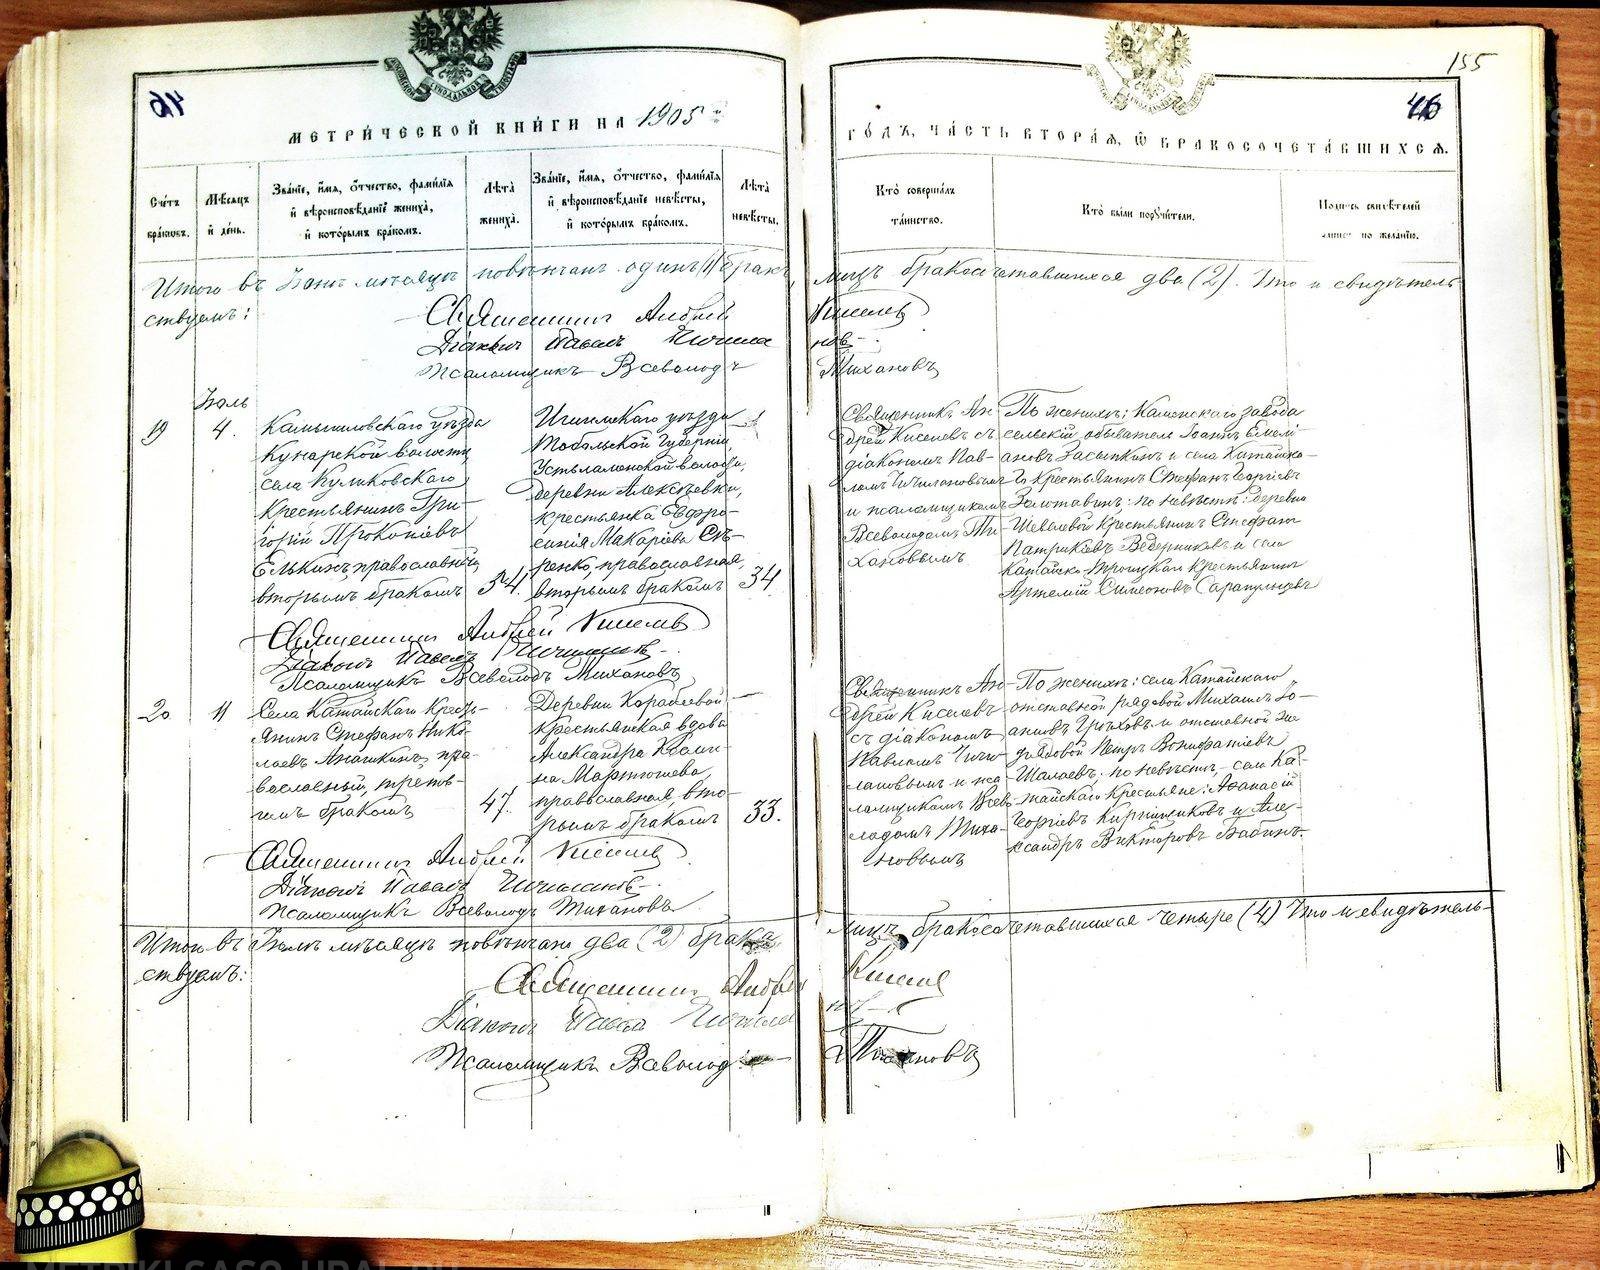 155
46
МЕТРИ́ЧЕСКОЙ КНИ́ГИ НА 1905
ГО́ДЪ, ЧА́СТЬ ВТОРА́Я, Ѿ БРАКОСОЧЕТА́ВШИХСЯ.
Сче́тъ бра́ковъ.
Мѣ́сяцъ и҆ де́нь.
Зва́нїе, и҆́мя, ѻ҆́тчество, фами́лїя
и҆ вѣроисповѣ́данїе жениха̀,
и҆ кото́рымъ бра́комъ.
Лѣ́та
жениха̀.
Зва́нїе, и҆́мя, ѻ҆́тчество, фами́лїя
и҆ вѣроисповѣ́данїе невѣ́сты,
и҆ кото́рымъ бра́комъ.
Лѣ́та
невѣ́сты.
Кто̀ соверша́лъ
та́инство.
Кто̀ бы́ли порꙋчи́тели.
По́дпись свидѣ́телей
по жела́нїю.
Итого въ Іюнѣ мѣсяцѣ повѣнчанъ одинъ (1) бракъ, лицъ бракосочетавшихся два (2). Что и свидѣтель
ствуемъ:
Священникъ Андрей Киселевъ
Діаконъ Павелъ Чичилановъ
Псаломщикъ Всеволодъ Тихановъ
Іюль
19
4.
Камышловскаго уѣзда
Кунарской волости,
села Куликовскаго
крестьянинъ Гри-
горій Прокопіевъ
Елькинъ, православный,
вторымъ бракомъ
34.
Ишимскаго уѣзда
Тобольской губерніи,
Устьламенской волости,
деревни Алексѣевки,
крестьянка Евфро-
синія Макаріева Сѣ-
ренко, православная,
вторымъ бракомъ
34
Священникъ Ан-
дрей Киселевъ съ
діакономъ Пав-
ломъ Чичилановымъ
и псаломщикомъ
Всеволодомъ Ти-
хановымъ
По женихѣ: Каменскаго завода
сельскій обыватель Іоаннъ Емелі-
ановъ Засыпкинъ и села Катайска-
го крестьянинъ Стефанъ Георгіевъ
Золотавинъ; по невѣстѣ: деревни
Шевалевой крестьянинъ Стефанъ
Патрикіевъ Ведерниковъ и села
Катайско-Троицкаго крестьянинъ
Артемій Симеоновъ Сарапульцевъ
Священникъ Андрей Киселевъ
Діаконъ Павелъ Чичилановъ
Псаломщикъ Всеволодъ Тихановъ
20
11
Села Катайскаго кресть-
янинъ Стефанъ Нико-
лаевъ Анашкинъ, пра-
вославный, треть-
имъ бракомъ
47.
Деревни Кораблевой
крестьянская вдова
Александра Косми-
на Мартюшева,
православная, вто-
рымъ бракомъ
33.
Священникъ Ан-
дрей Киселевъ
съ діакономъ
Павломъ Чичи-
лановымъ и пса-
ломщикомъ Всев-
лодомъ Тиха-
новымъ
По женихѣ: села Катайскаго
отставной рядовой Михаилъ Іо-
анновъ Грѣховъ и отставной же
рядовой Петръ Вонифатіевъ
Шалаевъ; по невѣстѣ,– села Ка-
тайскаго крестьяне: Аѳанасій
Георгіевъ Кирпищиковъ и Але-
ксандръ Викторовъ Бабинъ.
Священникъ Андрей Киселевъ
Діаконъ Павелъ Чичилановъ
Псаломщикъ Всеволодъ Тихановъ
Итого въ Іюлѣ мѣсяцѣ повѣнчано два (2) брака, лицъ бракосочетавшихся четыре (4) Что и свидѣтель-
ствуемъ:
Священникъ Андрей Киселевъ
Діаконъ Павелъ Чичилановъ
Псаломщикъ Всеволодъ Тихановъ